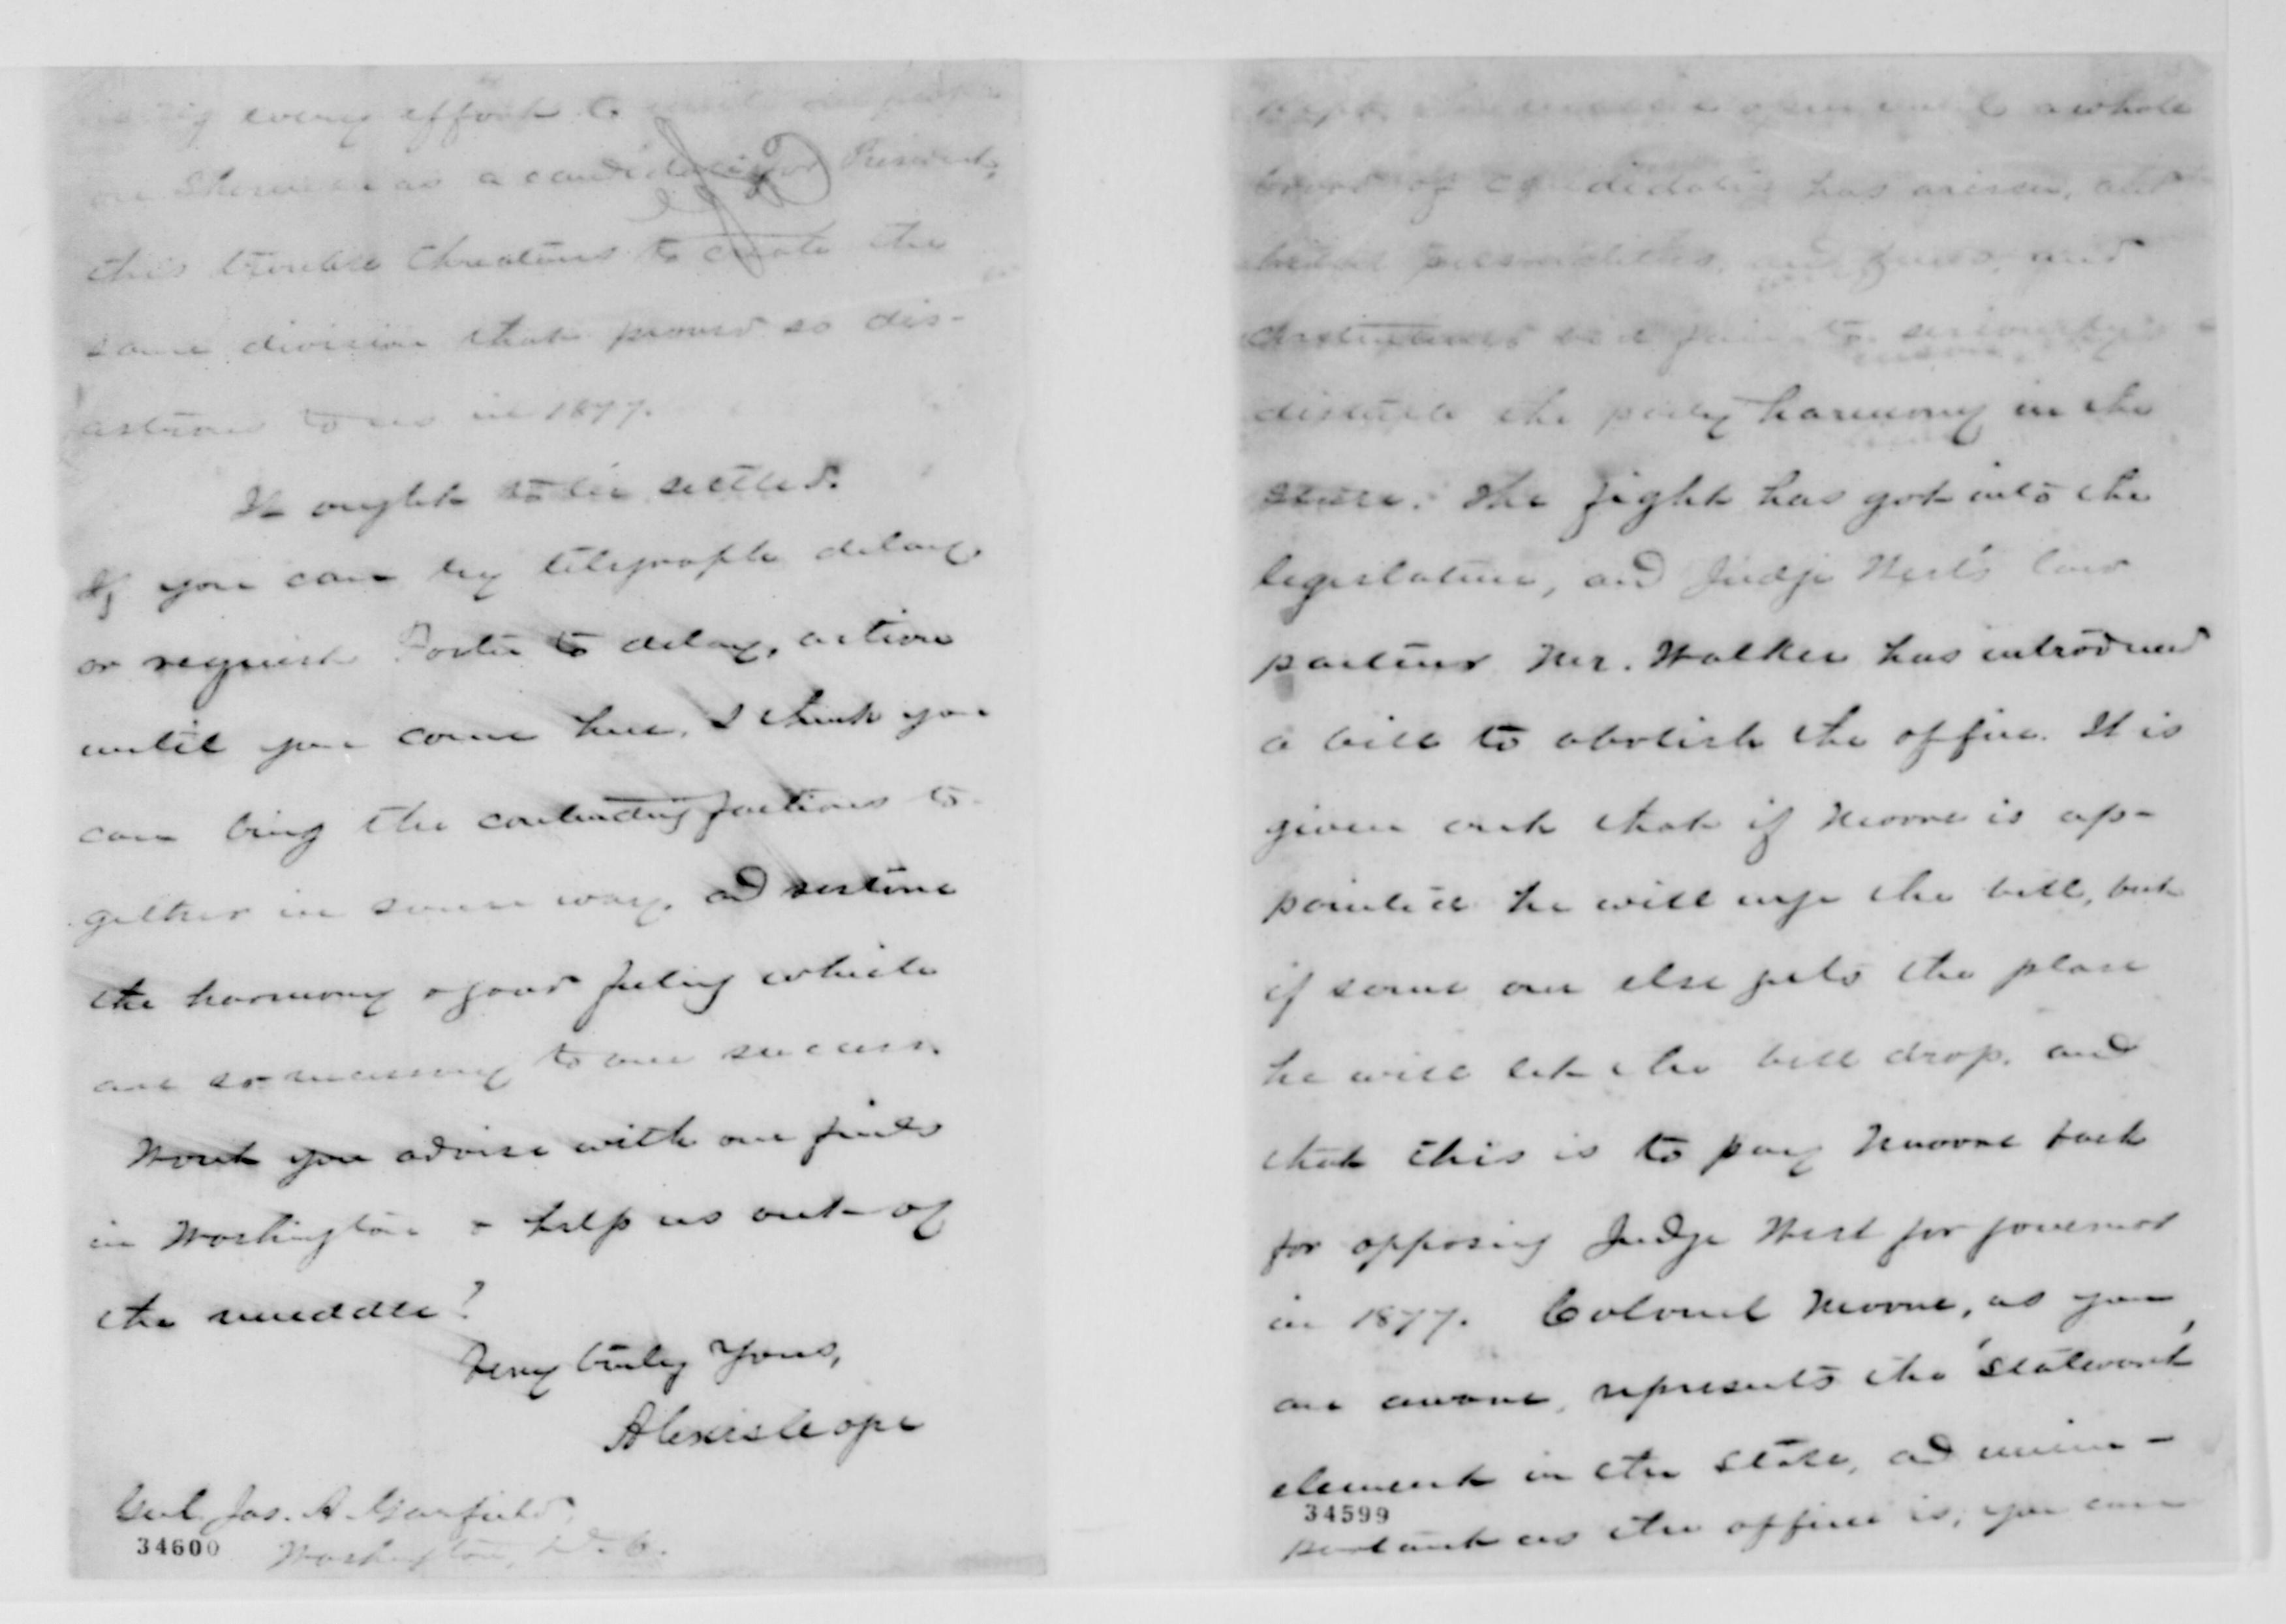 every effort to
on Sherman as a candidate for President,
this trouble threatens to create the
same division that proved so dis-
astrous to us in 1877.
It ought to be settled.
If you can by telegraph delay,
or request Foster to delay, action
until you come here, I think you
can bring the contending factions to-
gether in some way, and restore
the harmony & good feeling which
are so necessary to our success.
Wont you advise with our friends
in Washington & help us out of
the muddle?
Very truly Yours,
Alexis Cope
Genl Jas. A. Garfield,
Washington, D.C.
34600
kept the matter open until a whole
brood of candidates has arisen, and
personalities, and
to seriously
disturb the party harmony in the
State. The fight has got into the
legislature, and Judge West's law
partner Mr. Walker has introduced
a bill to abolish the office. It is
given out that if Moore is ap-
pointed he will urge the bill, but
if some one else gets the place
he will let the bill drop, and
that this is to pay Moore back
for opposing Judge West for governor
in 1877. Colonel Moore, as you
are aware, represents the 'Stalwart'
element in the State, and unim-
portant as the office is, you can
34599